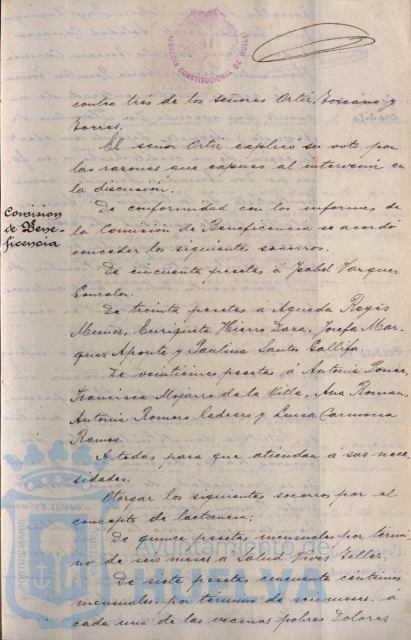 ALCALDIA CONSTITUCIONAL DE HUELVA
contra tres de los señores Ortiz, Toscano y
Torres.
El señor Ortiz explicó su voto por
las razones que expuso al intervenir en
la discusión.
Comision
de Bene-
ficencia
De conformidad con los informes de
la Comisión de Beneficencia se acordó
conceder los siguientes socorros.
De cincuenta pesetas á Isabel Vazquez
Gonzalez.
De treinta pesetas a Agueda Reyes
Muñoz, Enriqueta Hierro Daza, Josefa Mar-
quez Aponte y Paulina Santos Gallifa.
De veinticinco pesetas á Antonia Ponce,
Francisca Mojarro de la Villa, Ana Roman,
Antonia Romero y Luisa Carmona
Ramos.
A todas para que atiendan a sus nece-
sidades.
Otorgar los siguientes socorros por el
concepto de lactancia:
De quince pesetas mensuales por térmi-
no de seis meses a Salud Vives Tellez.
De siete pesetas cincuenta céntimos
mensuales por término de seis meses á
cada una de las vecinas pobres Dolores
PORTUS MARIS ET TERRAE CUSTODIA
Ayuntamiento de
HUELVA